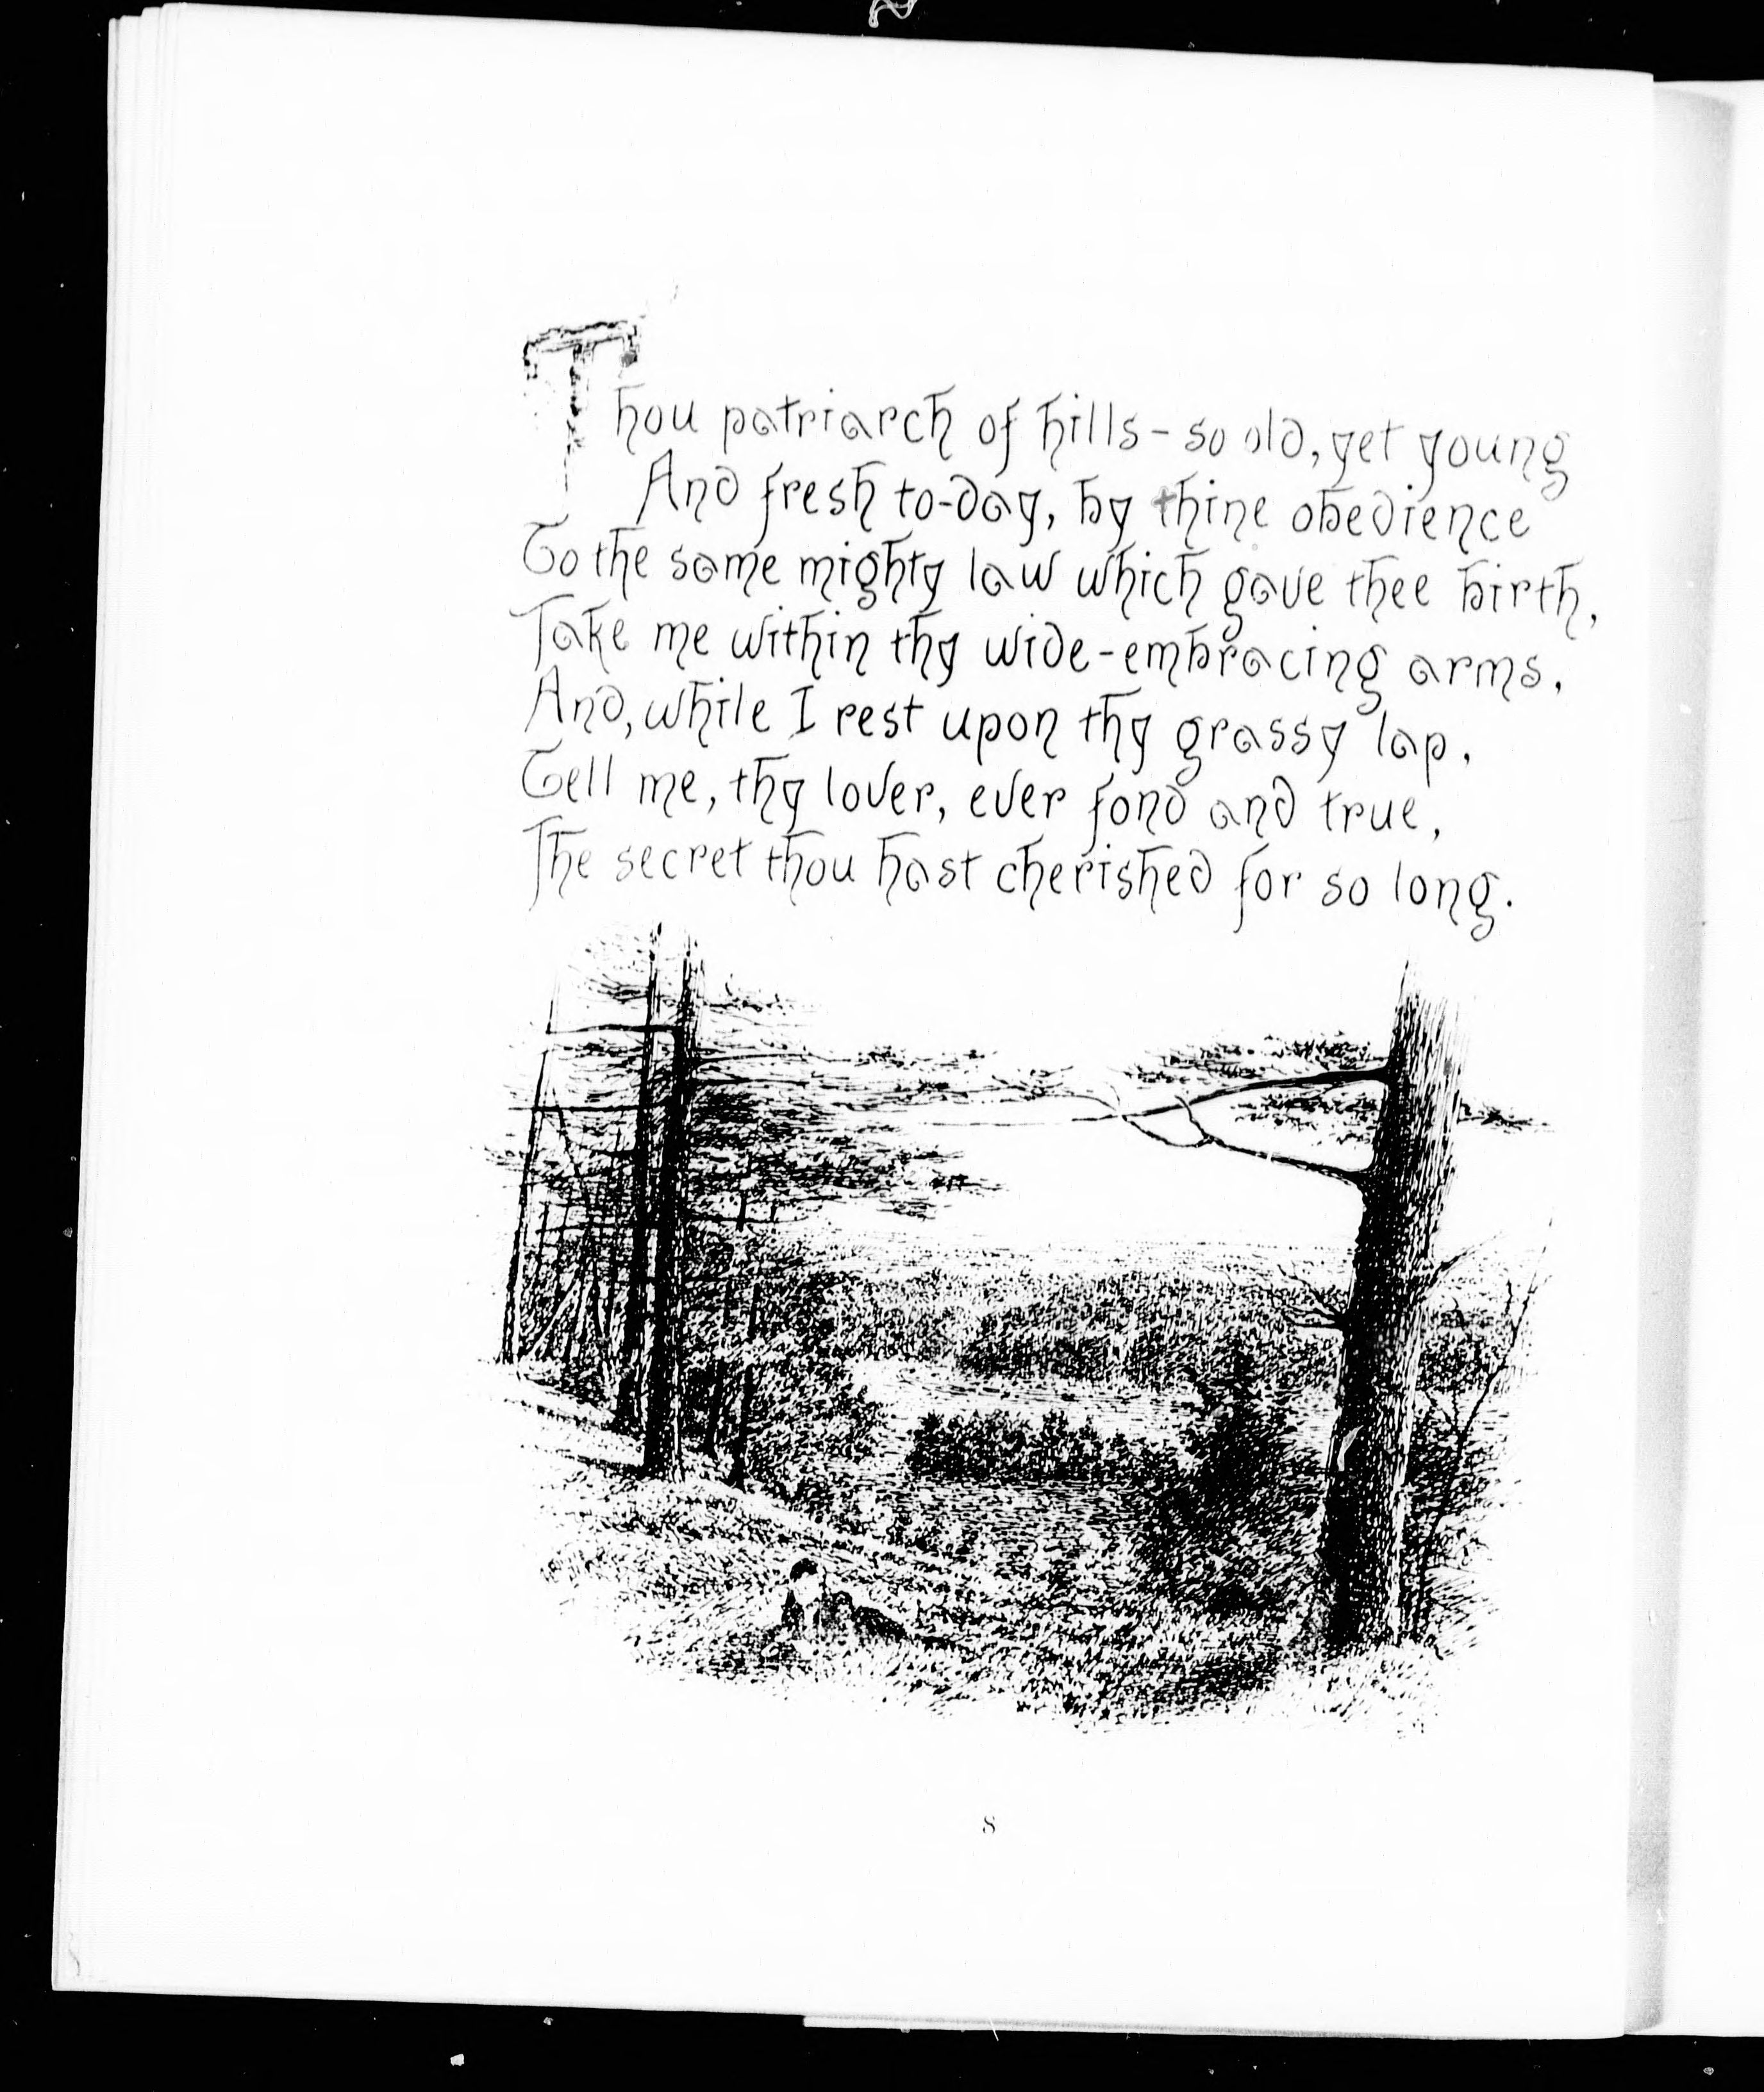 Thou patriarch of hills - so old, yet young
And fresh to-day, by thine obedience
To the same mighty law which gave thee birth,
Take me within thy wide-embracing arms,
And, while I rest upon thy grassy lap,
Tell me, thy lover, ever fond and true,
The secret thou hast cherished for so long.
8